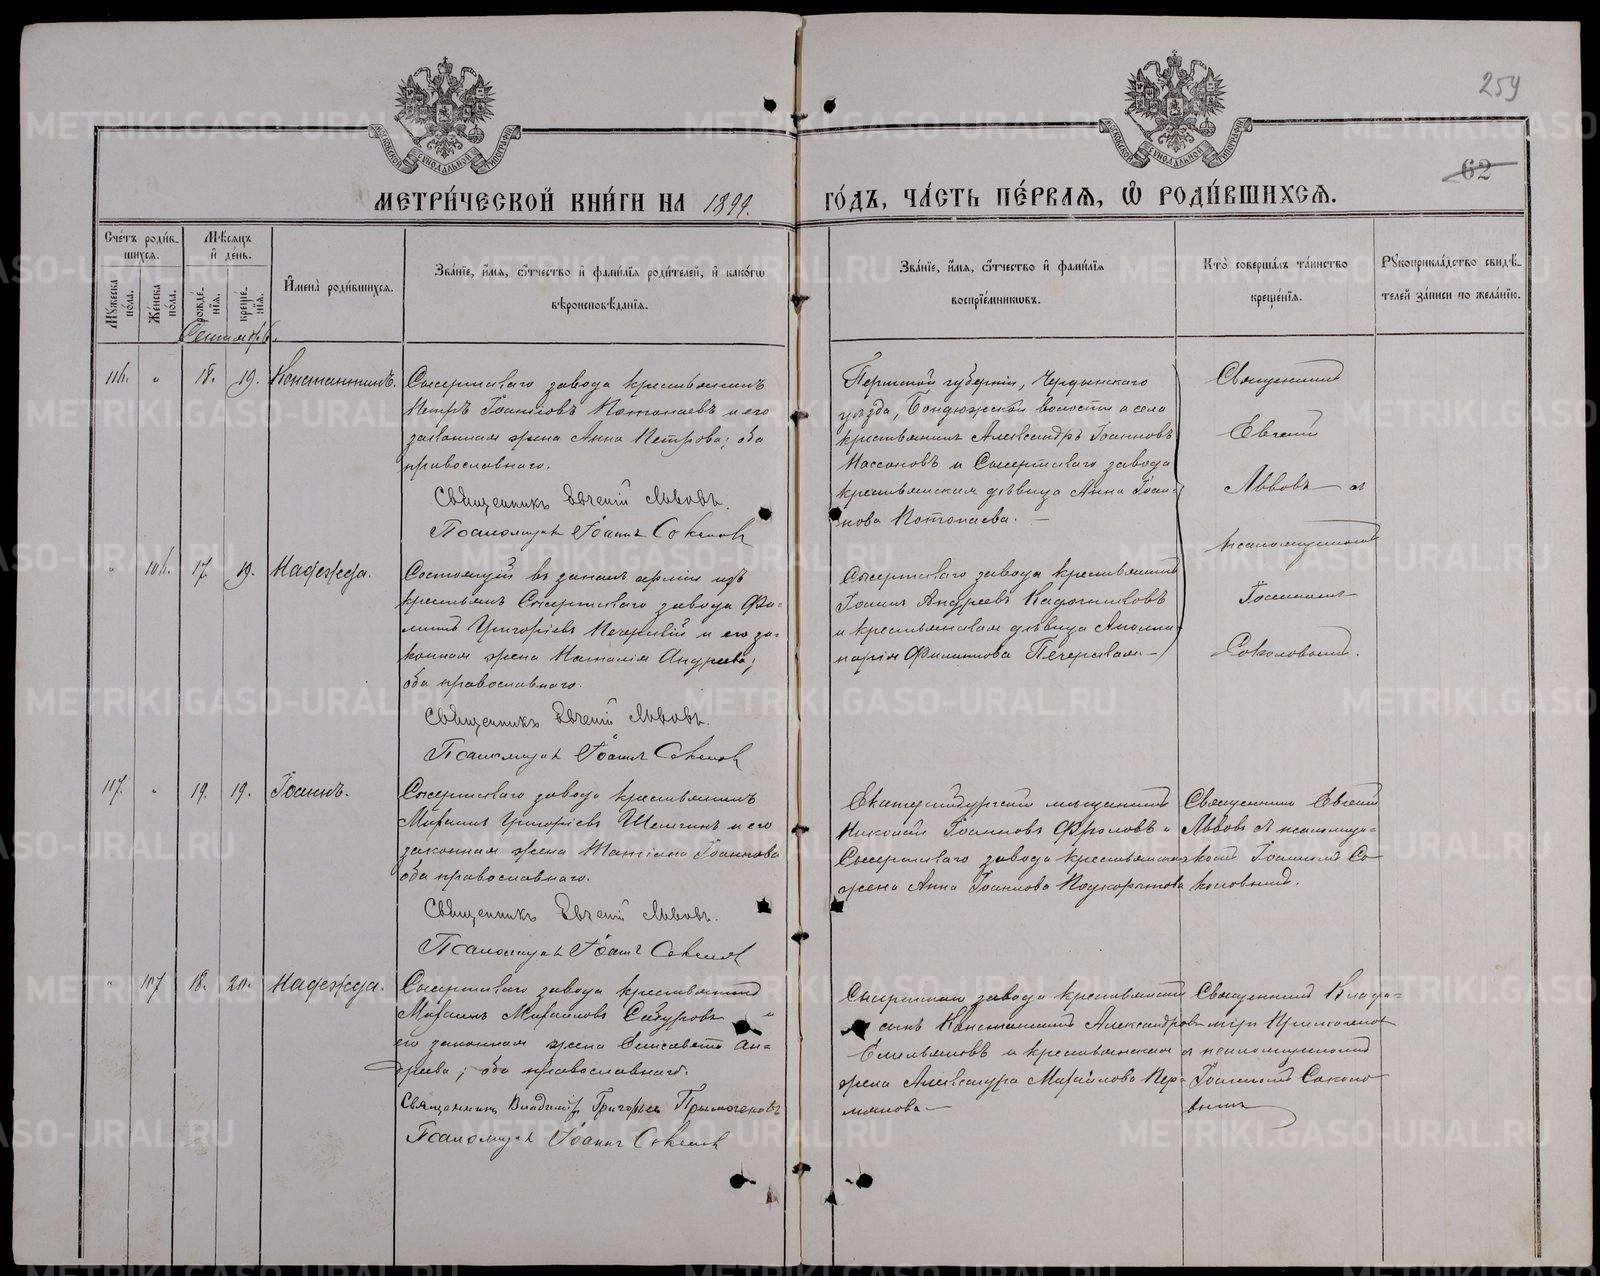 259
62
МОСКОВСКОЙ СѴНОДАЛЬНОЙ ТИПОГРАФІИ
МОСКОВСКОЙ СѴНОДАЛЬНОЙ ТИПОГРАФІИ
МЕТРИ́ЧЕСКОЙ КНИ́ГИ НА 1899. ГО́ДЪ, ЧА́СТЬ ПЕ́РВАЯ, Ѽ РОДИ́ВШИХСЯ.
Сче́тъ роди́в-
шихся.
Му́жеска по́ла.
Же́нска по́ла.
Мѣ́сяцъ
и҆ де́нь.
рожде́-
нїя.
креще́-
нїя.
И҆мена̀ роди́вшихся.
Зва́нїе, и҆́мя, ѻ҆́тчество и҆ фами́лїя роди́телей, и҆ како́гѡ
вѣроисповѣ́данїя.
Зва́нїе, и҆́мя, ѻ҆́тчество и҆ фами́лїя
воспрїе́мникѡвъ.
Кто̀ соверша́лъ та́инство
креще́нїя.
Рꙋкоприкла́дство свидѣ́-
телей за́писи по жела́нїю.
Сентябрь.
116. " 18. 19. Константинъ.
Сысертскаго завода крестьянинъ
Петръ Іоанновъ Потопаевъ и его
законная жена Анна Петрова; оба
православнаго.
Священникъ Евгеній Львовъ.
Псаломщикъ Іоаннъ Соколовъ
Пермской губерніи, Чердынскаго
уѣзда, Бондюжской волости и села
крестьянинъ Александръ Іоанновъ
и Сысертскаго завода
крестьянская дѣвица Анна Іоан-
нова Потопаева. —
Священникъ
Евгеній
Львовъ съ
псаломщикомъ
Іоанномъ
Соколовымъ.
" 106. 17. 19. Надежда.
Состоящій въ запасѣ арміи изъ
крестьянъ Сысертскаго завода Фи-
липпъ Григорьевъ Печерскій и его за-
конная жена Наталія Андреева;
оба православнаго.
Священникъ Евгеній Львовъ.
Псаломщикъ Іоаннъ Соколовъ
Сысертскаго завода крестьянинъ
Іоаннъ Андреевъ Кадочниковъ
и крестьянская дѣвица Аполли-
нарія Филиппова Печерская. —
117. " 19. 19. Іоаннъ.
Сысертскаго завода крестьянинъ
Михаилъ Григорьевъ и его
законная жена Татіана Іоаннова
оба православнаго.
Священникъ Евгеній Львовъ.
Псаломщикъ Іоаннъ Соколовъ
Екатеринбургскій мѣщанинъ
Николай Іоанновъ Фроловъ и
Сысертскаго завода крестьянская
жена Анна Іоаннова Подкорытова
Священникъ Евгеній
Львовъ съ псаломщи-
комъ Іоанномъ Со-
коловымъ.
" 117 18. 20. Надежда.
Сысертскаго завода крестьянинъ
Михаилъ Михайловъ и
его законная жена Елисавета Ан-
дреева; оба православнаго.
Священникъ Владиміръ Григорьевъ
Псаломщикъ Іоаннъ Соколовъ
завода крестьянинъ
сынъ Константинъ Александровъ
Емельяновъ и крестьянская
жена Александра Михайлова Пер-
минова —
Священникъ Влади-
міръ съ
псаломщикомъ
Іоанномъ Соколо-
вымъ
METRIKI.GASO-URAL.RU